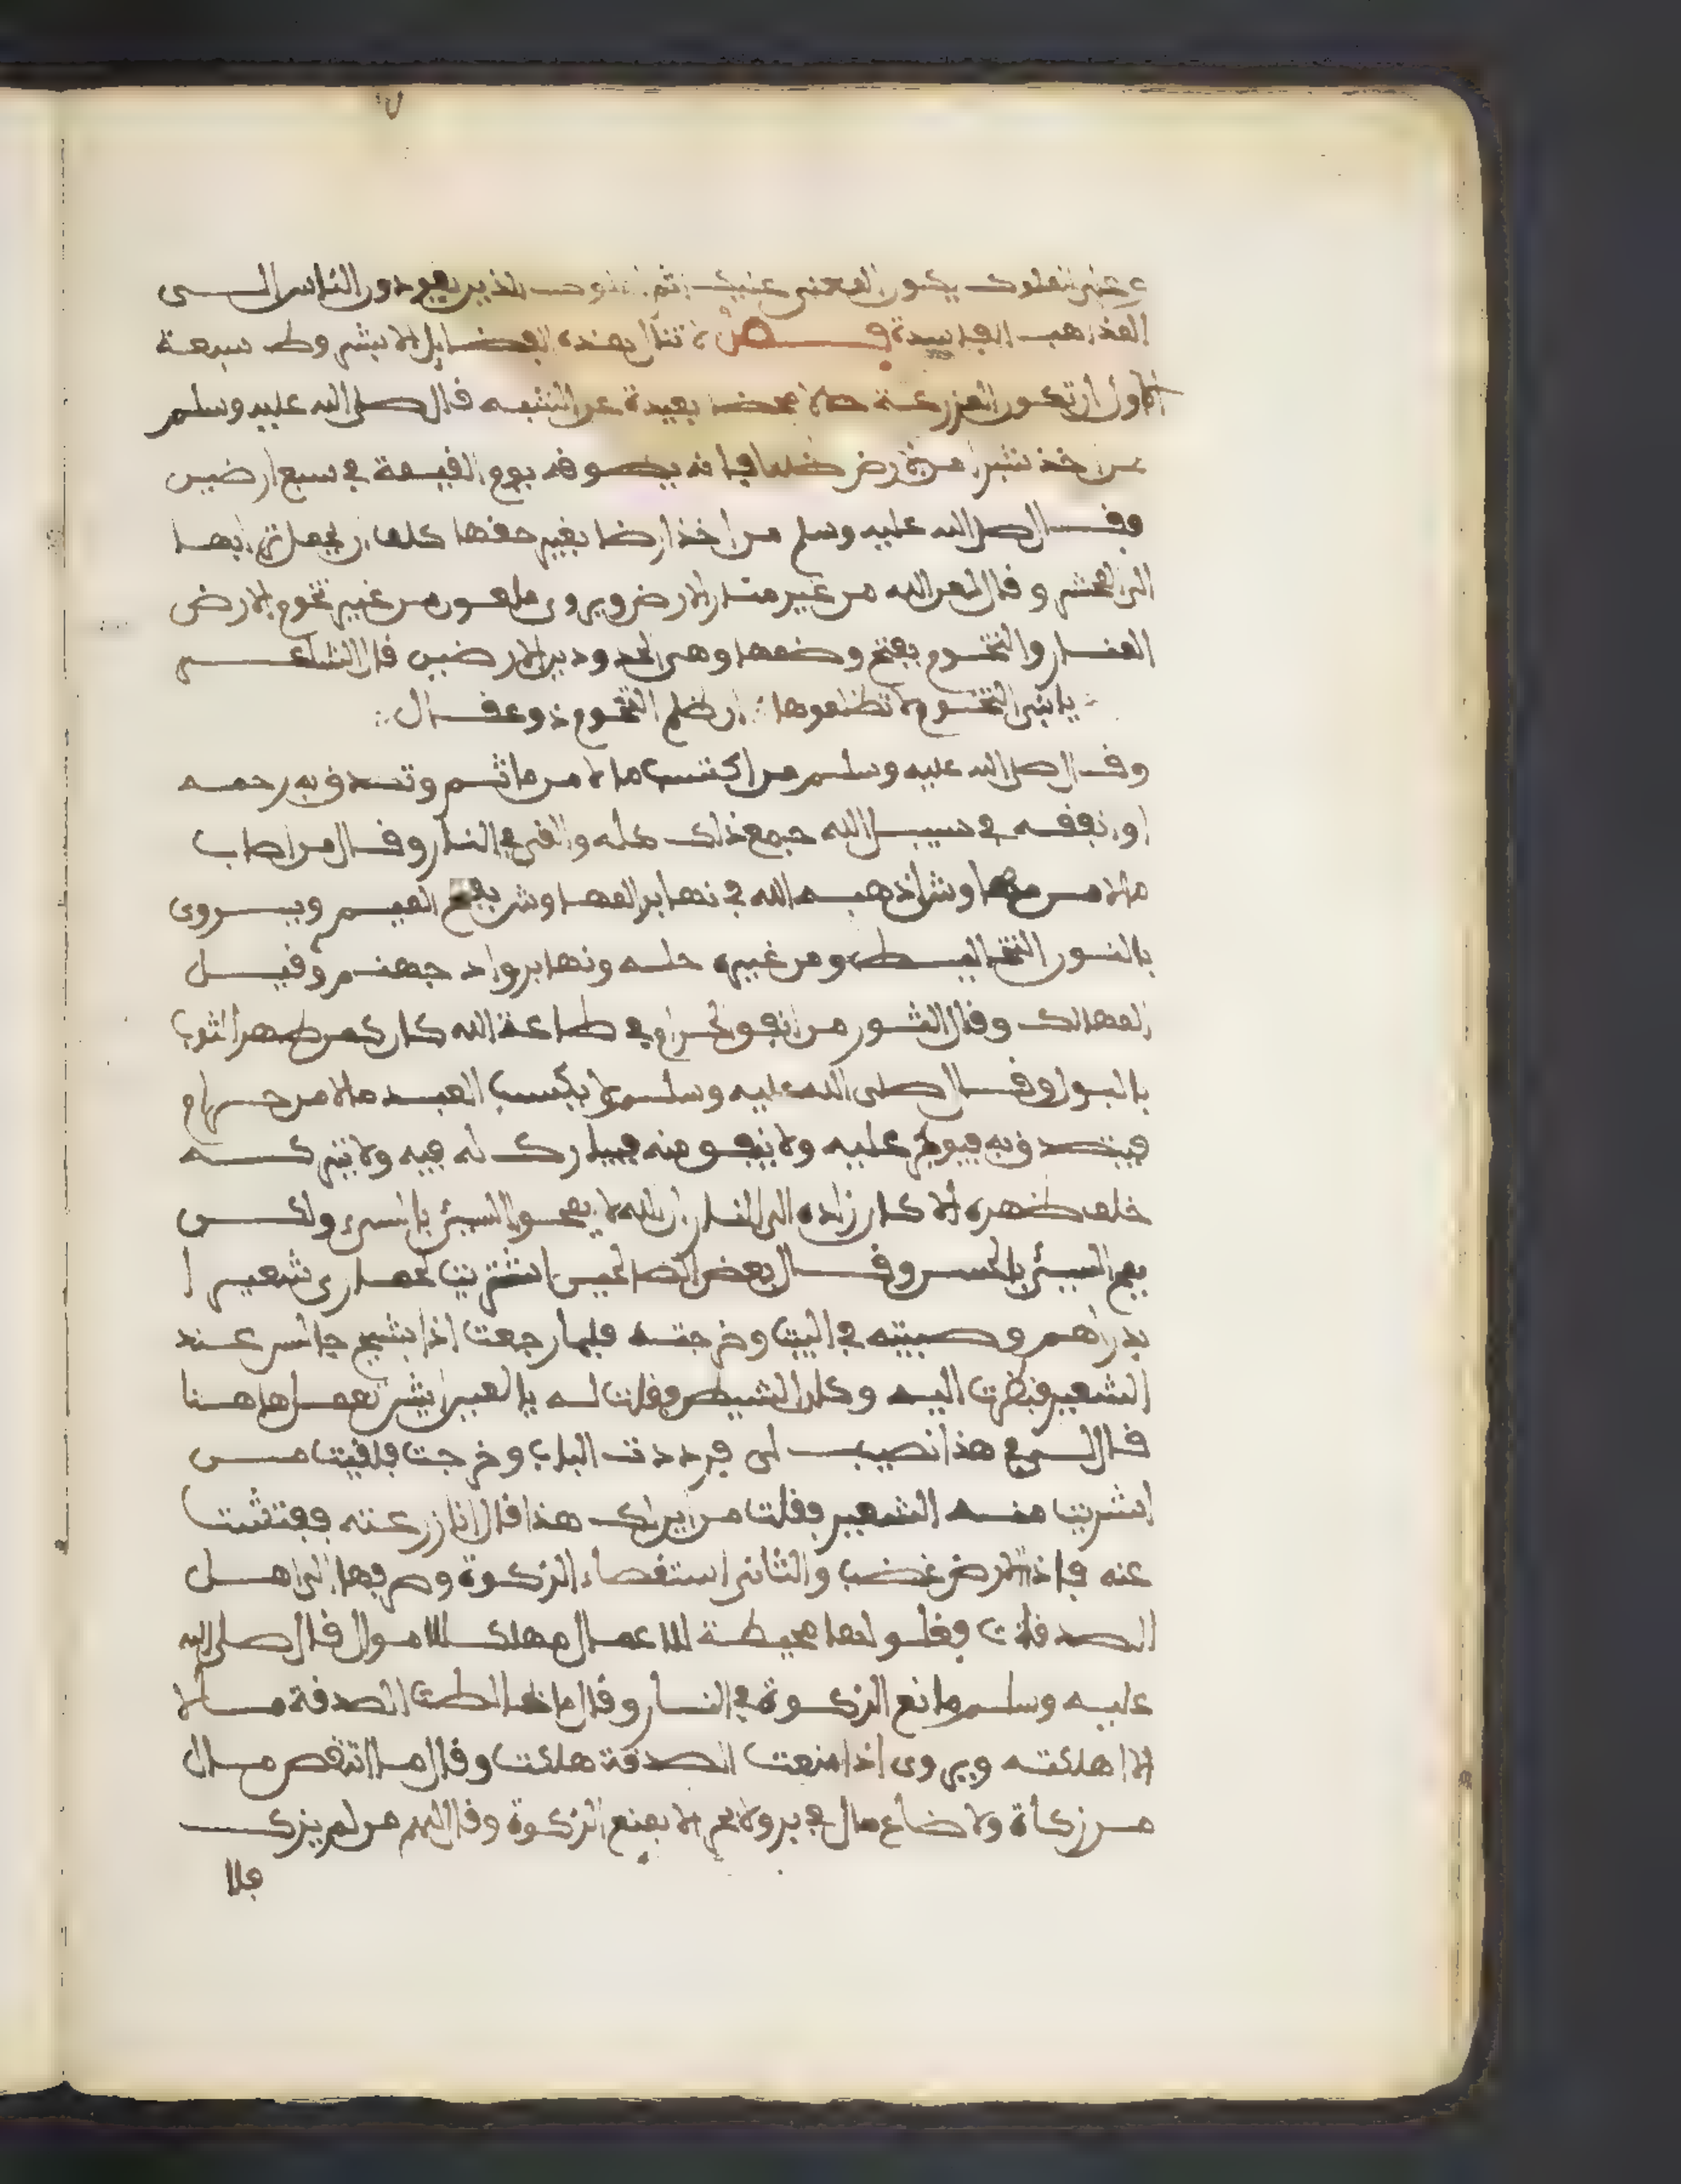 المذاهب الفاسدة فصل لا تنال هذه الفضايل الا بشروط سبعة
الاول ان تكون المزرعة حلالا محضا بعيدة عن الشبه فال صلى الله عليه وسلم
من اخذ شبرا من الارض ظلما فانه يطوفه يوم الفيمة في سبع ارضين
وفال صلى الله عليه وسلم من اخذ ارضا بغير حفها كلف ان يحمل ترابها
الى المحشر وفال لعن الله من غير منار الارض ويروى ملعون من غير تخوم الارض
المنار والتخوم بفتح وضمها وهى الحدود بين الارضين فال الشاعر
يا بنى التخوم لا تظلموها ان ظلم التخوم ذو عفال
وفال صلى الله عليه وسلم من اكتسب مالا من ماثم وتصدق به رحمه
او انففه في سبيل الله جمع ذلك كله والفى في النار وفال من اصاب
مالا من مهاوش اذهبه الله في نهابر المهاوش بفتح الميم ويروى
بالنون التخاليط ومن غير حله ونهابر واد جهنم وفيل
المهالك وفال الثور من انفو الحرام في طاعة الله كان كمن طهر الثوب
بالبول وفال صلى الله عليه وسلم لا يكسب العبد مالا من حرام
فيتصدق به فيوجر عليه ولا ينفو منه فيبارك له فيه ولا يتركه
خلف ظهره الا كان زاده الى النار ان الله لا يمحو السيئ بالسيئ ولكن
يمح السيئ بالحسن وفال بعض الصالحين اشتريت لحمارى شعيرا
بدراهم وصببته في البيت وخرجت فلما رجعت اذا بشيخ جالس عند
الشعير فنظرت اليه وكان الشيطن ففلت له يا لعين ايش تعمل هاهنا
فال لى في هذا نصيب لى فرددت الباب وخرجت فلفيت من
اشتريت منه الشعير ففلت من اين لك هذا فال انا زرعته ففتشت
عنه فاذا الارض غضب والثانى استفصاء الزكوة وصرفها الى اهل
الصدفات فغلولها محيطة للاعمال مهلك للاموال فال صلى الله
عليه وسلم مانع الزكوة في النار وفال ما خالطت الصدفة مالا
الا اهلكته ويروى اذا منعت الصدفة هلكت وفال ما انتفص مال
من زكاة ولا ضاع مال في بر ولا بحر الا بمنع الزكوة وفال اليهم من لم يزك
فلا